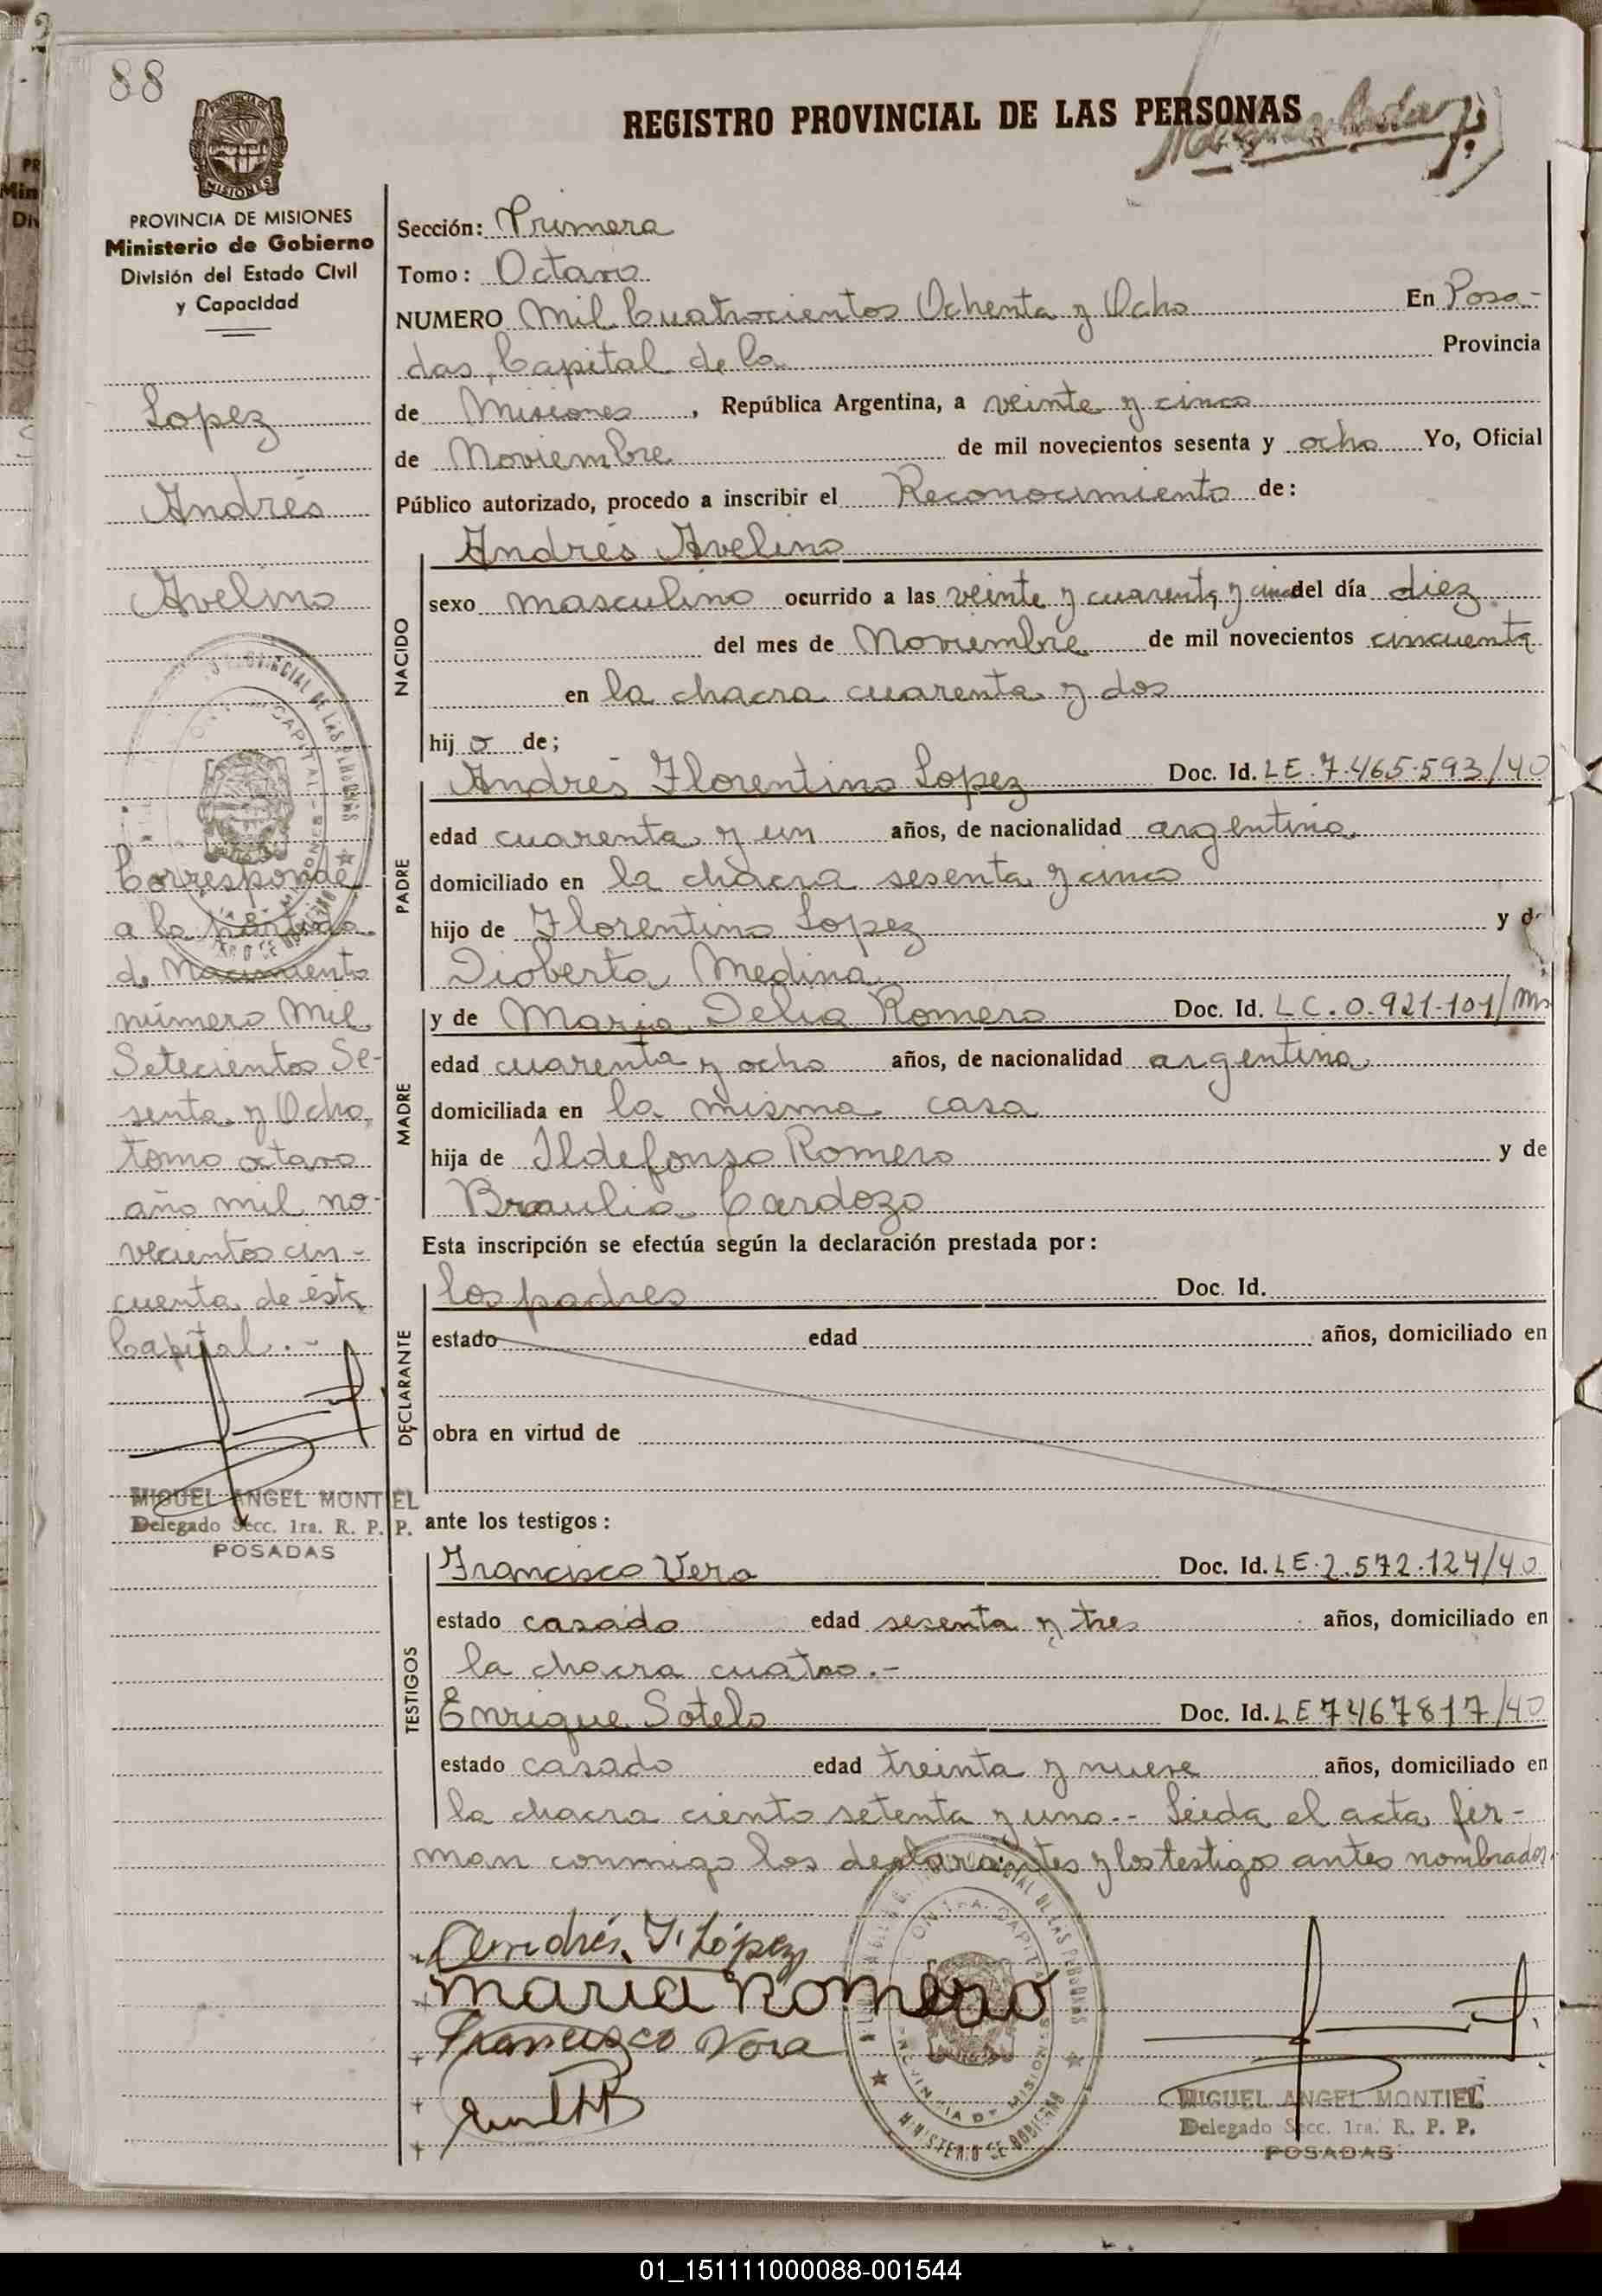 88
REGISTRO PROVINCIAL DE LAS PERSONAS
PROVINCIA DE MISIONES
Ministerio de Gobierno
División del Estado Civil
y Capacidad
Lopez
Andrés
Avelino
Corresponde
a la partida
de Nacimiento
número Mil
Setecientos Se-
senta y Ocho,
tomo octavo
año mil no-
vecientos cin-
cuenta de ésta
Capital.-
MIGUEL ANGEL MONTIEL
Delegado Secc. 1ra. R. P. P.
POSADAS
Sección: Primera
Tomo: Octavo
NUMERO Mil Cuatrocientos Ochenta y Ocho En Posa-
das, Capital de la Provincia
de Misiones, República Argentina, a veinte y cinco
de Noviembre de mil novecientos sesenta y ocho Yo, Oficial
Público autorizado, procedo a inscribir el Reconocimiento de:
NACIDO
Andrés Avelino
sexo masculino ocurrido a las veinte y cuarenta y cinco del día diez
del mes de Noviembre de mil novecientos cincuenta
en la chacra cuarenta y dos
hijo de;
PADRE
Andrés Florentino Lopez Doc. Id. LE.7.465.593/40
edad cuarenta y un años, de nacionalidad argentina
domiciliado en la chacra sesenta y cinco
hijo de Florentino Lopez y de
Dioberta Medina
MADRE
y de Maria Delia Romero Doc. Id. LC.0.921.101/Ms
edad cuarenta y ocho años, de nacionalidad argentina
domiciliada en la misma casa
hija de Ildefonso Romero y de
Braulia Cardozo
Esta inscripción se efectúa según la declaración prestada por:
DECLARANTE
los padres Doc. Id.
estado edad años, domiciliado en
obra en virtud de
ante los testigos:
TESTIGOS
Francisco Vera Doc. Id. LE.2.572.124/40
estado casado edad sesenta y tres años, domiciliado en
la chacra cuatro.-
Enrique Sotelo Doc. Id. LE7467817/40
estado casado edad treinta y nueve años, domiciliado en
la chacra ciento setenta y uno.- Leida el acta, fir-
man conmigo los declarantes y los testigos antes nombrados.
Andrés F. López
maria Romero
Francisco Vera
MIGUEL ANGEL MONTIEL
Delegado Secc. 1ra. R. P. P.
POSADAS
01_151111000088-001544